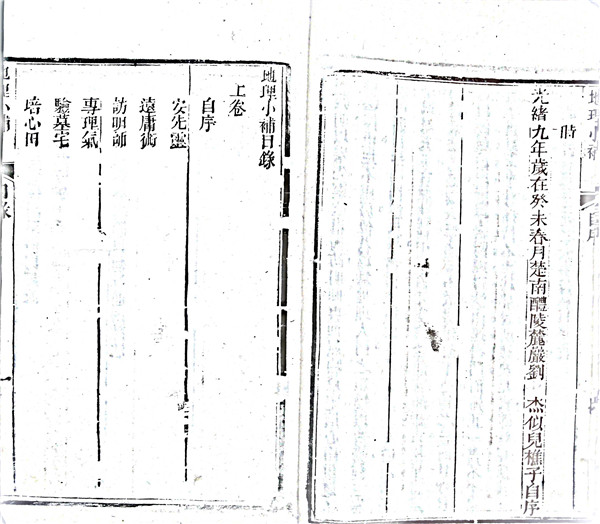 地理小補
自序
時
光緒九年歲在癸未春月楚南醴陵麓巖劉　杰似兒樵子自序
地理小補目錄
上卷
自序
安先靈
遠庸術
訪明師
專理氣
驗墓宅
培心田
地理小補
目錄
一